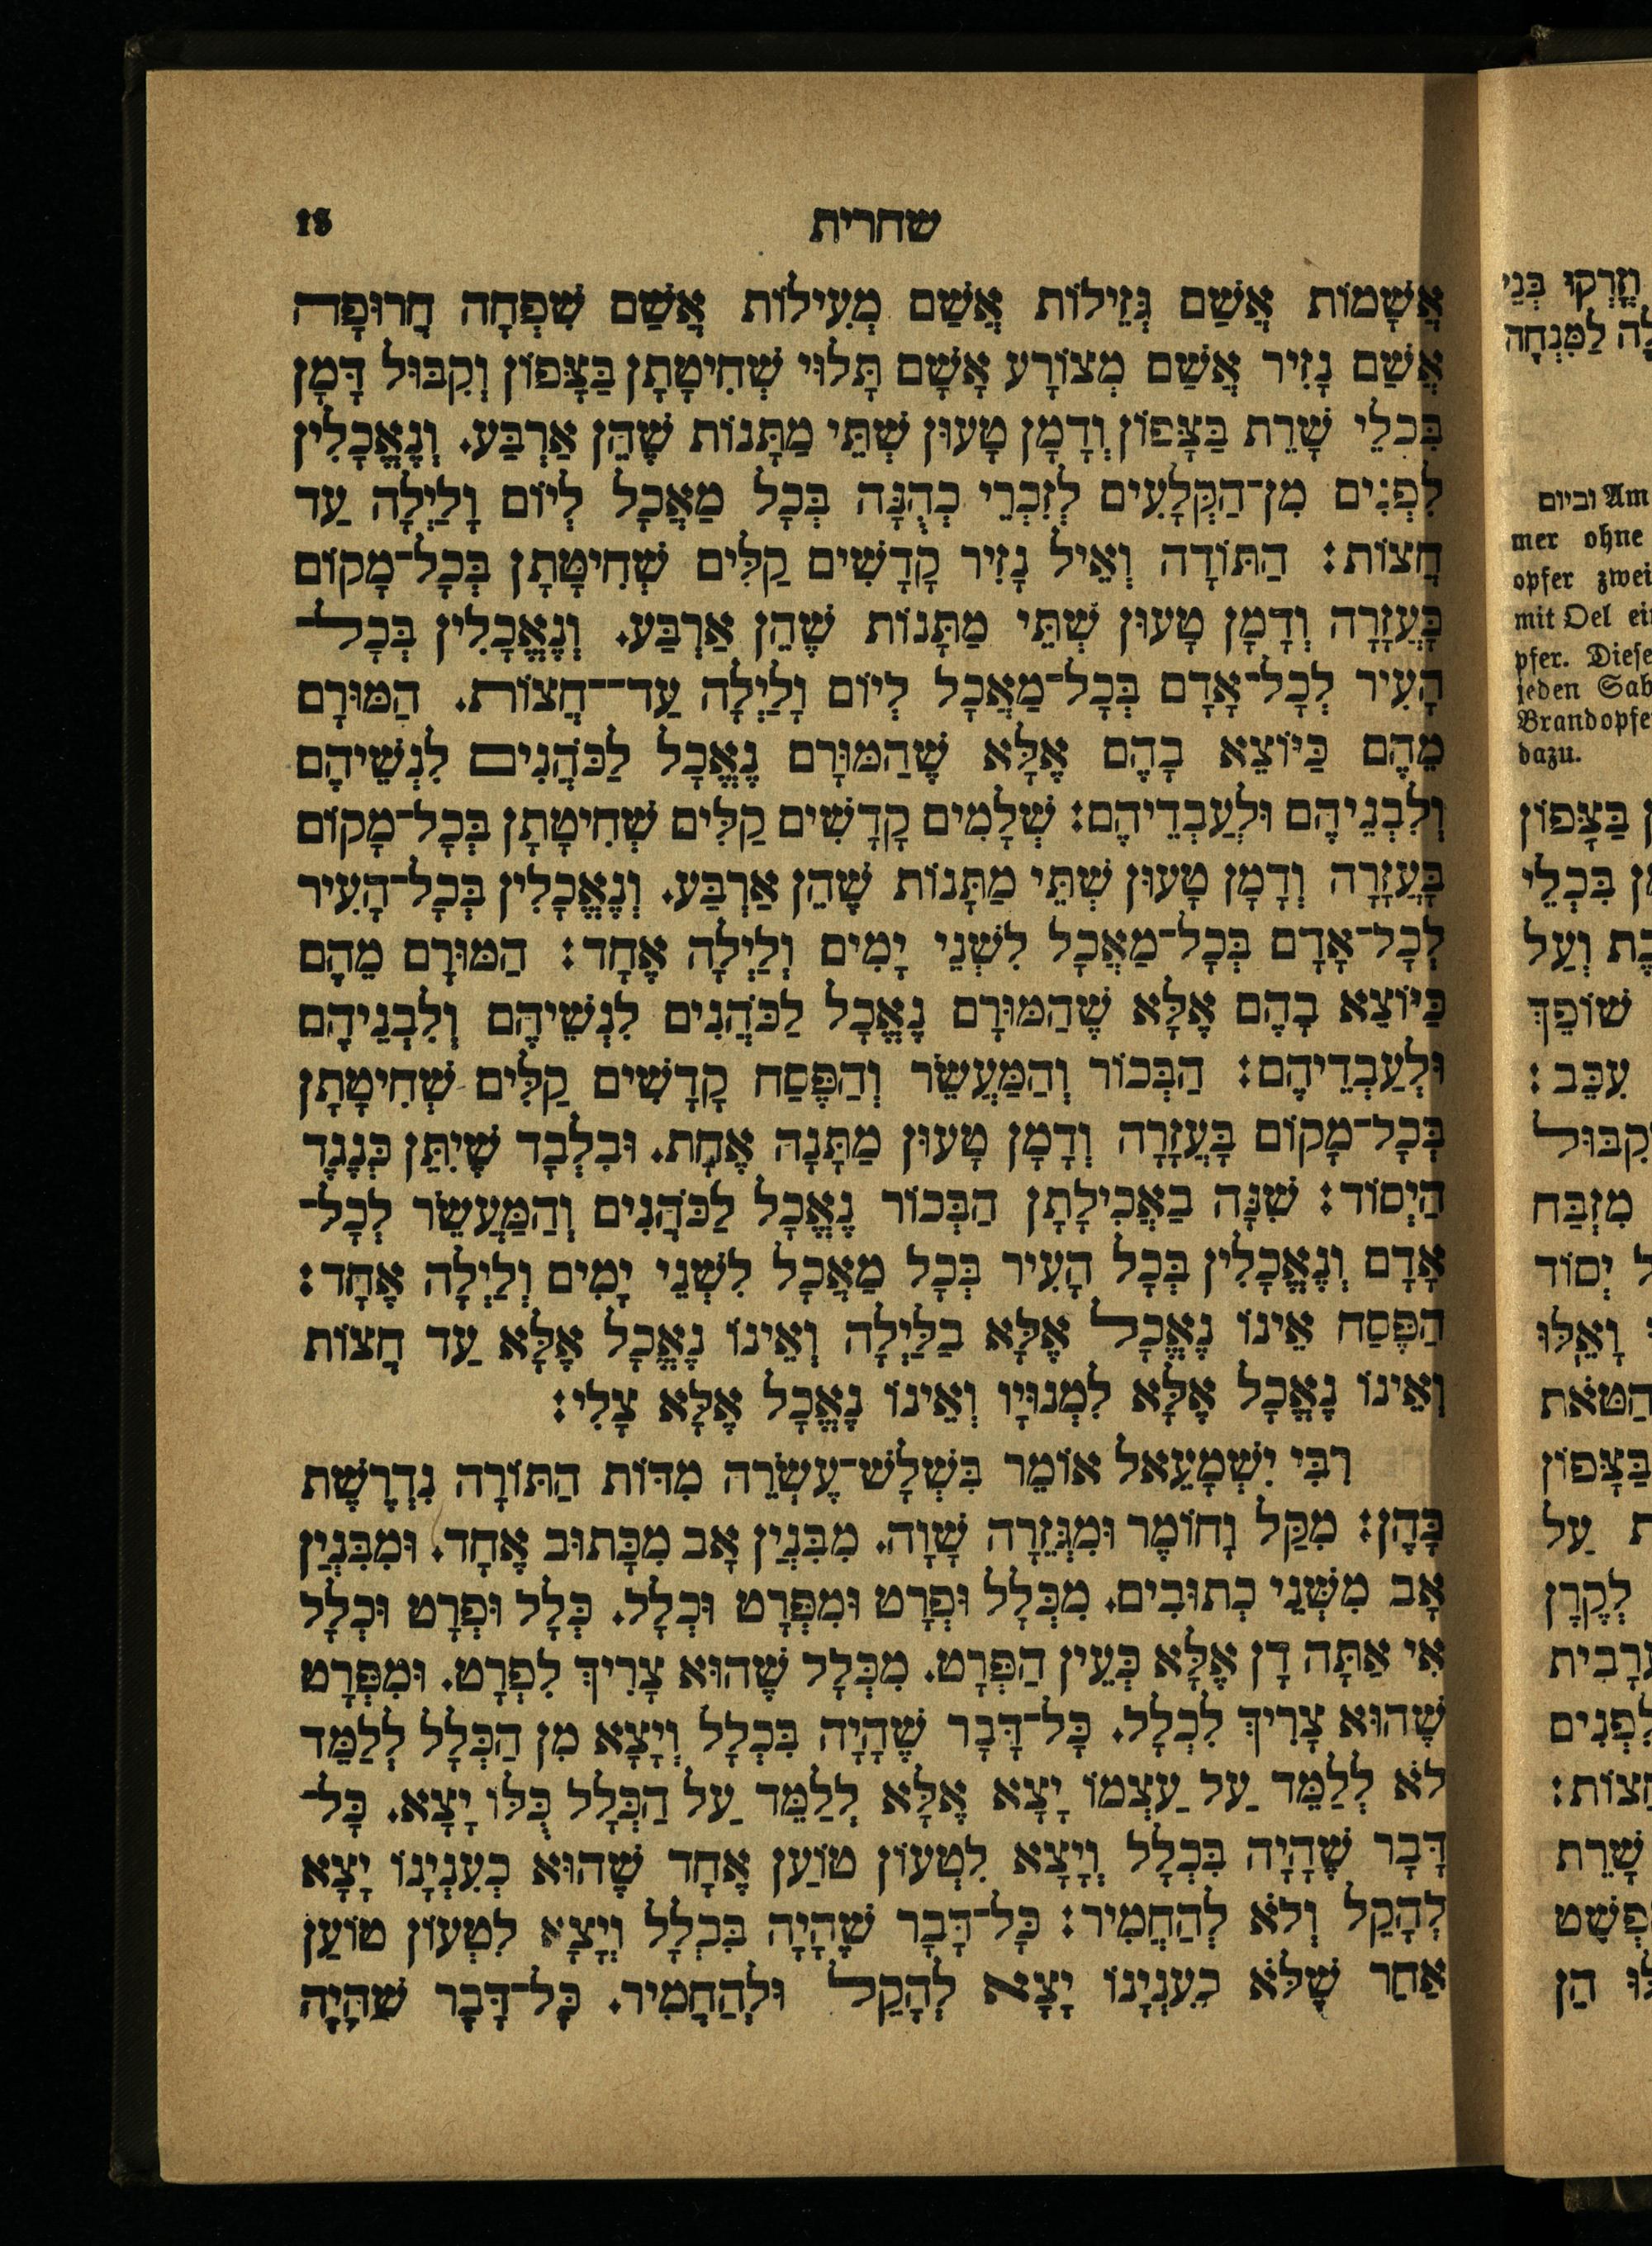 שחרית 18
אֲשָׁמוֹת אֲשַׁם גְּזֵילוֹת אֲשַׁם מְעִילוֹת אֲשַׁם שִׁפְחָה חֲרוּפָה
אֲשַׁם נָזִיר אֲשַׁם מְצוֹרָע אָשָׁם תָּלוּי שְׁחִיטָתָן בַּצָּפוֹן וְקִבּוּל דָּמָן
בִּכְלֵי שָׁרֵת בַּצָּפוֹן וְדָמָן טָעוּן שְׁתֵּי מַתָּנוֹת שֶׁהֵן אַרְבַּע. וְנֶאֱכָלִין
לִפְנִים מִן־הַקְּלָעִים לְזִכְרֵי כְהֻנָּה בְּכָל מַאֲכָל לְיוֹם וָלַיְלָה עַד
חֲצוֹת: הַתּוֹדָה וְאֵיל נָזִיר קָדָשִׁים קַלִּים שְׁחִיטָתָן בְּכָל־מָקוֹם
בָּעֲזָרָה וְדָמָן טָעוּן שְׁתֵּי מַתָּנוֹת שֶׁהֵן אַרְבַּע. וְנֶאֱכָלִין בְּכָל־
הָעִיר לְכָל־אָדָם בְּכָל־מַאֲכָל לְיוֹם וָלַיְלָה עַד־חֲצוֹת. הַמּוּרָם
מֵהֶם כַּיּוֹצֵא בָהֶם אֶלָּא שֶׁהַמּוּרָם נֶאֱכָל לַכֹּהֲנִים לִנְשֵׁיהֶם
וְלִבְנֵיהֶם וּלְעַבְדֵיהֶם: שְׁלָמִים קָדָשִׁים קַלִּים שְׁחִיטָתָן בְּכָל־מָקוֹם
בָּעֲזָרָה וְדָמָן טָעוּן שְׁתֵּי מַתָּנוֹת שֶׁהֵן אַרְבַּע. וְנֶאֱכָלִין בְּכָל־הָעִיר
לְכָל־אָדָם בְּכָל־מַאֲכָל לִשְׁנֵי יָמִים וְלַיְלָה אֶחָד: הַמּוּרָם מֵהֶם
כַּיּוֹצֵא בָהֶם אֶלָּא שֶׁהַמּוּרָם נֶאֱכָל לַכֹּהֲנִים לִנְשֵׁיהֶם וְלִבְנֵיהֶם
וּלְעַבְדֵיהֶם: הַבְּכוֹר וְהַמַּעֲשֵׂר וְהַפֶּסַח קָדָשִׁים קַלִּים שְׁחִיטָתָן
בְּכָל־מָקוֹם בָּעֲזָרָה וְדָמָן טָעוּן מַתָּנָה אֶחָת. וּבִלְבָד שֶׁיִּתֵּן כְּנֶגֶד
הַיְסוֹד: שִׁנָּה בַאֲכִילָתָן הַבְּכוֹר נֶאֱכָל לַכֹּהֲנִים וְהַמַּעֲשֵׂר לְכָל־
אָדָם וְנֶאֱכָלִין בְּכָל הָעִיר בְּכָל מַאֲכָל לִשְׁנֵי יָמִים וְלַיְלָה אֶחָד:
הַפֶּסַח אֵינוֹ נֶאֱכָל אֶלָּא בַלַּיְלָה וְאֵינוֹ נֶאֱכָל אֶלָּא עַד חֲצוֹת
וְאֵינוֹ נֶאֱכָל אֶלָּא לִמְנוּיָו וְאֵינוֹ נֶאֱכָל אֶלָּא צָלִי:
רַבִּי יִשְׁמָעֵאל אוֹמֵר בִּשְׁלֹשׁ־עֶשְׂרֵה מִדּוֹת הַתּוֹרָה נִדְרֶשֶׁת
בָּהֶן: מִקַּל וָחוֹמֶר וּמִגְּזֵרָה שָׁוָה. מִבִּנְיַן אָב מִכָּתוּב אֶחָד. וּמִבִּנְיַן
אָב מִשְּׁנֵי כְתוּבִים. מִכְּלָל וּפְרָט וּמִפְּרָט וּכְלָל. כְּלָל וּפְרָט וּכְלָל
אִי אַתָּה דָן אֶלָּא כְּעֵין הַפְּרָט. מִכְּלָל שֶׁהוּא צָרִיךְ לִפְרָט. וּמִפְּרָט
שֶׁהוּא צָרִיךְ לִכְלָל. כָּל־דָּבָר שֶׁהָיָה בִּכְלָל וְיָצָא מִן הַכְּלָל לְלַמֵּד
לֹא לְלַמֵּד עַל עַצְמוֹ יָצָא אֶלָּא לְלַמֵּד עַל הַכְּלָל כֻּלּוֹ יָצָא. כָּל־
דָּבָר שֶׁהָיָה בִּכְלָל וְיָצָא לִטְעוֹן טוֹעַן אֶחָד שֶׁהוּא כְעִנְיָנוֹ יָצָא
לְהָקֵל וְלֹא לְהַחֲמִיר: כָּל־דָּבָר שֶׁהָיָה בִּכְלָל וְיָצָא לִטְעוֹן טוֹעַן
אַחֵר שֶׁלֹּא כְעִנְיָנוֹ יָצָא לְהָקֵל וּלְהַחֲמִיר. כָּל־דָּבָר שֶׁהָיָה
וְזָרְקוּ בְּנֵי
לַמִּנְחָה
וביום Am
mer ohne
opfer zwei
mit Oel
pfer. Diese
jeden
Brandopfe
dazu.
בַּצָּפוֹן
בִּכְלֵי
וְעַל
שׁוֹפֵךְ
עִכֵּב:
מִזְבַּח
יְסוֹד
וָאֵלּוּ
בַּצָּפוֹן
עַל
לְקֶרֶן
שָׁרֵת
הֵן